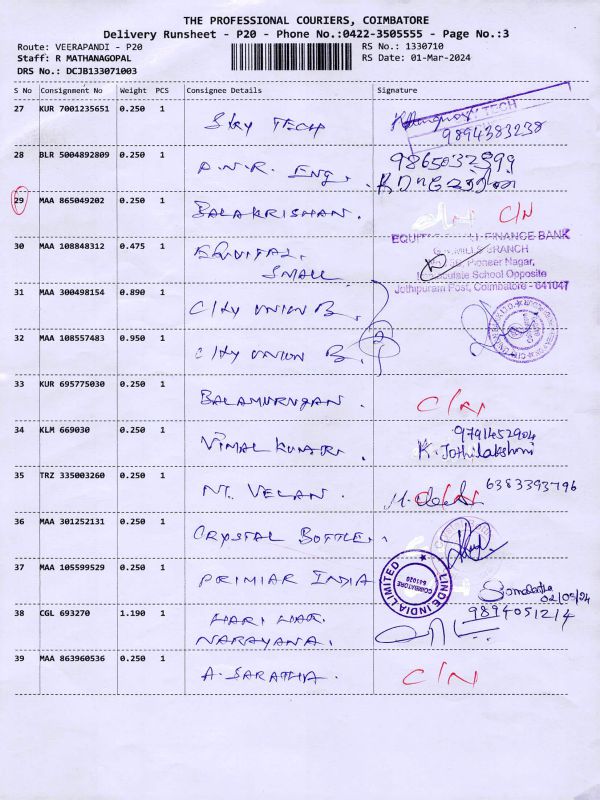 THE PROFESSIONAL COURIERS, COIMBATORE
Delivery Runsheet - P20 - Phone No.:0422-3505555 - Page No.:3
Route: VEERAPANDI - P20
Staff: R MATHANAGOPAL
DRS No.: DCJB133071003
RS No.: 1330710
RS Date: 01-Mar-2024
S No Consignment No Weight PCS Consignee Details Signature
27 KUR 7001235651 0.250 1 Sky TECH
TECH
9894383238
28 BLR 5004892809 0.250 1 A.N.R. ENG.
29 MAA 865049202 0.250 1 BALAKRISHAN. C/N
30 MAA 108848312 0.475 1 EQUITAL.
SMALL
FINANCE BANK
BRANCH
Pioneer Nagar,
School Opposite
Jothipuram Post, Coimbatore - 641047
31 MAA 300498154 0.890 1 CITY UNION B.
32 MAA 108557483 0.950 1 CITY UNION B.
33 KUR 695775030 0.250 1 BALAMURUGAN. C/N
34 KLM 669030 0.250 1 VIMAL KUMAR. 9791452904
K. Jothilakshmi
35 TRZ 335003260 0.250 1 NT. VELAN. 6383393796
36 MAA 301252131 0.250 1 CRYSTAL BOTTLE.
37 MAA 105599529 0.250 1 PRIMIAR INDIA
LINDE INDIA LIMITED
COIMBATORE
641020
02/03/24
38 CGL 693270 1.190 1 HARI HAR.
NARAYANA.
9894051214
39 MAA 863960536 0.250 1 A. SARATHA. C/N